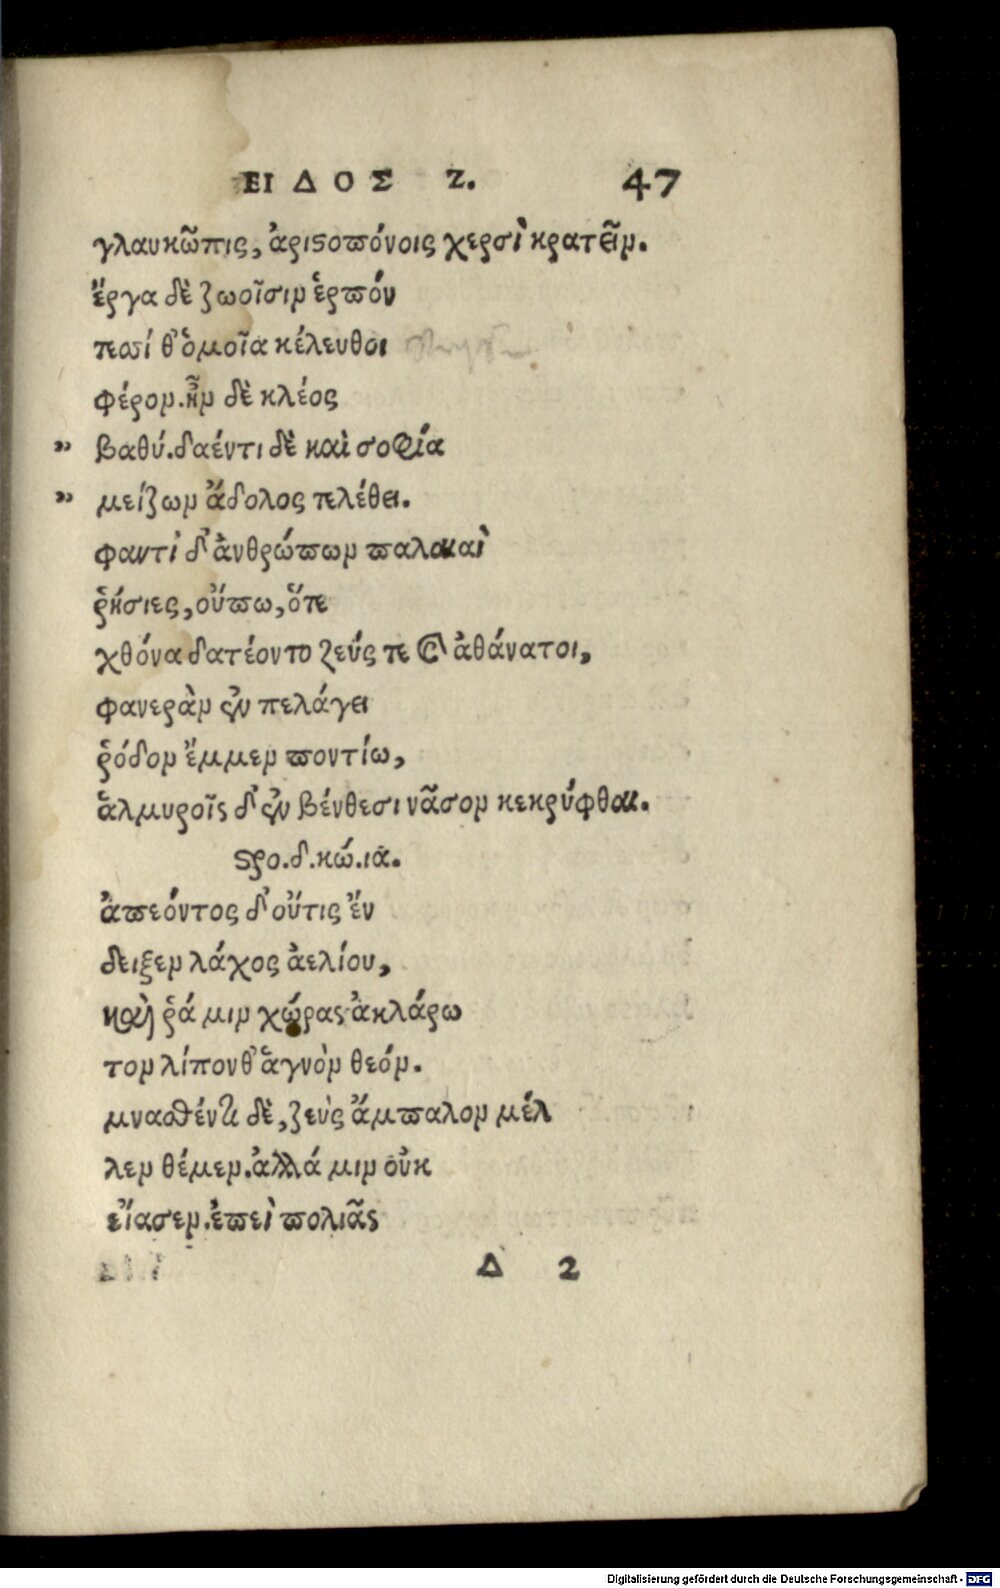 ΕΙΔΟΣ Ζ. 47
γλαυκῶπις, ἀριϛοπόνοις χερσὶ κρατεῖν.
ἔργα δὲ ζωοῖσιν ἑρπόν
τεσί θ' ὁμοῖα κέλευθοι
φέρον. ἦν δὲ κλέος
" βαθύ. δαέντι δὲ καὶ σοφία
" μείζων ἄδολος τελέθει.
φαντὶ δ' ἀνθρώπων παλαιαὶ
ῥήσιες, οὔπω, ὅτε
χθόνα δατέοντο ζεύς τε καὶ ἀθάνατοι,
φανερὰν ἐν πελάγει
ῥόδον ἔμμεν ποντίω,
ἁλμυροῖς δ' ἐν βένθεσι νᾶσον κεκρύφθαι.
ϛρο.δ.κώ.ια.
ἀπεόντος δ' οὔτις ἔν
δειξεν λάχος ἀελίου,
καὶ ῥά μιν χώρας ἀκλάρω
τον λίπονθ' ἁγνὸν θεόν.
μνασθέντι δὲ, ζεὺς ἄμπαλον μέλ
λεν θέμεν. ἀλλά μιν οὐκ
εἴασεν. ἐπεὶ πολιᾶς
Δ 2
Digitalisierung gefördert durch die Deutsche Forschungsgemeinschaft - DFG